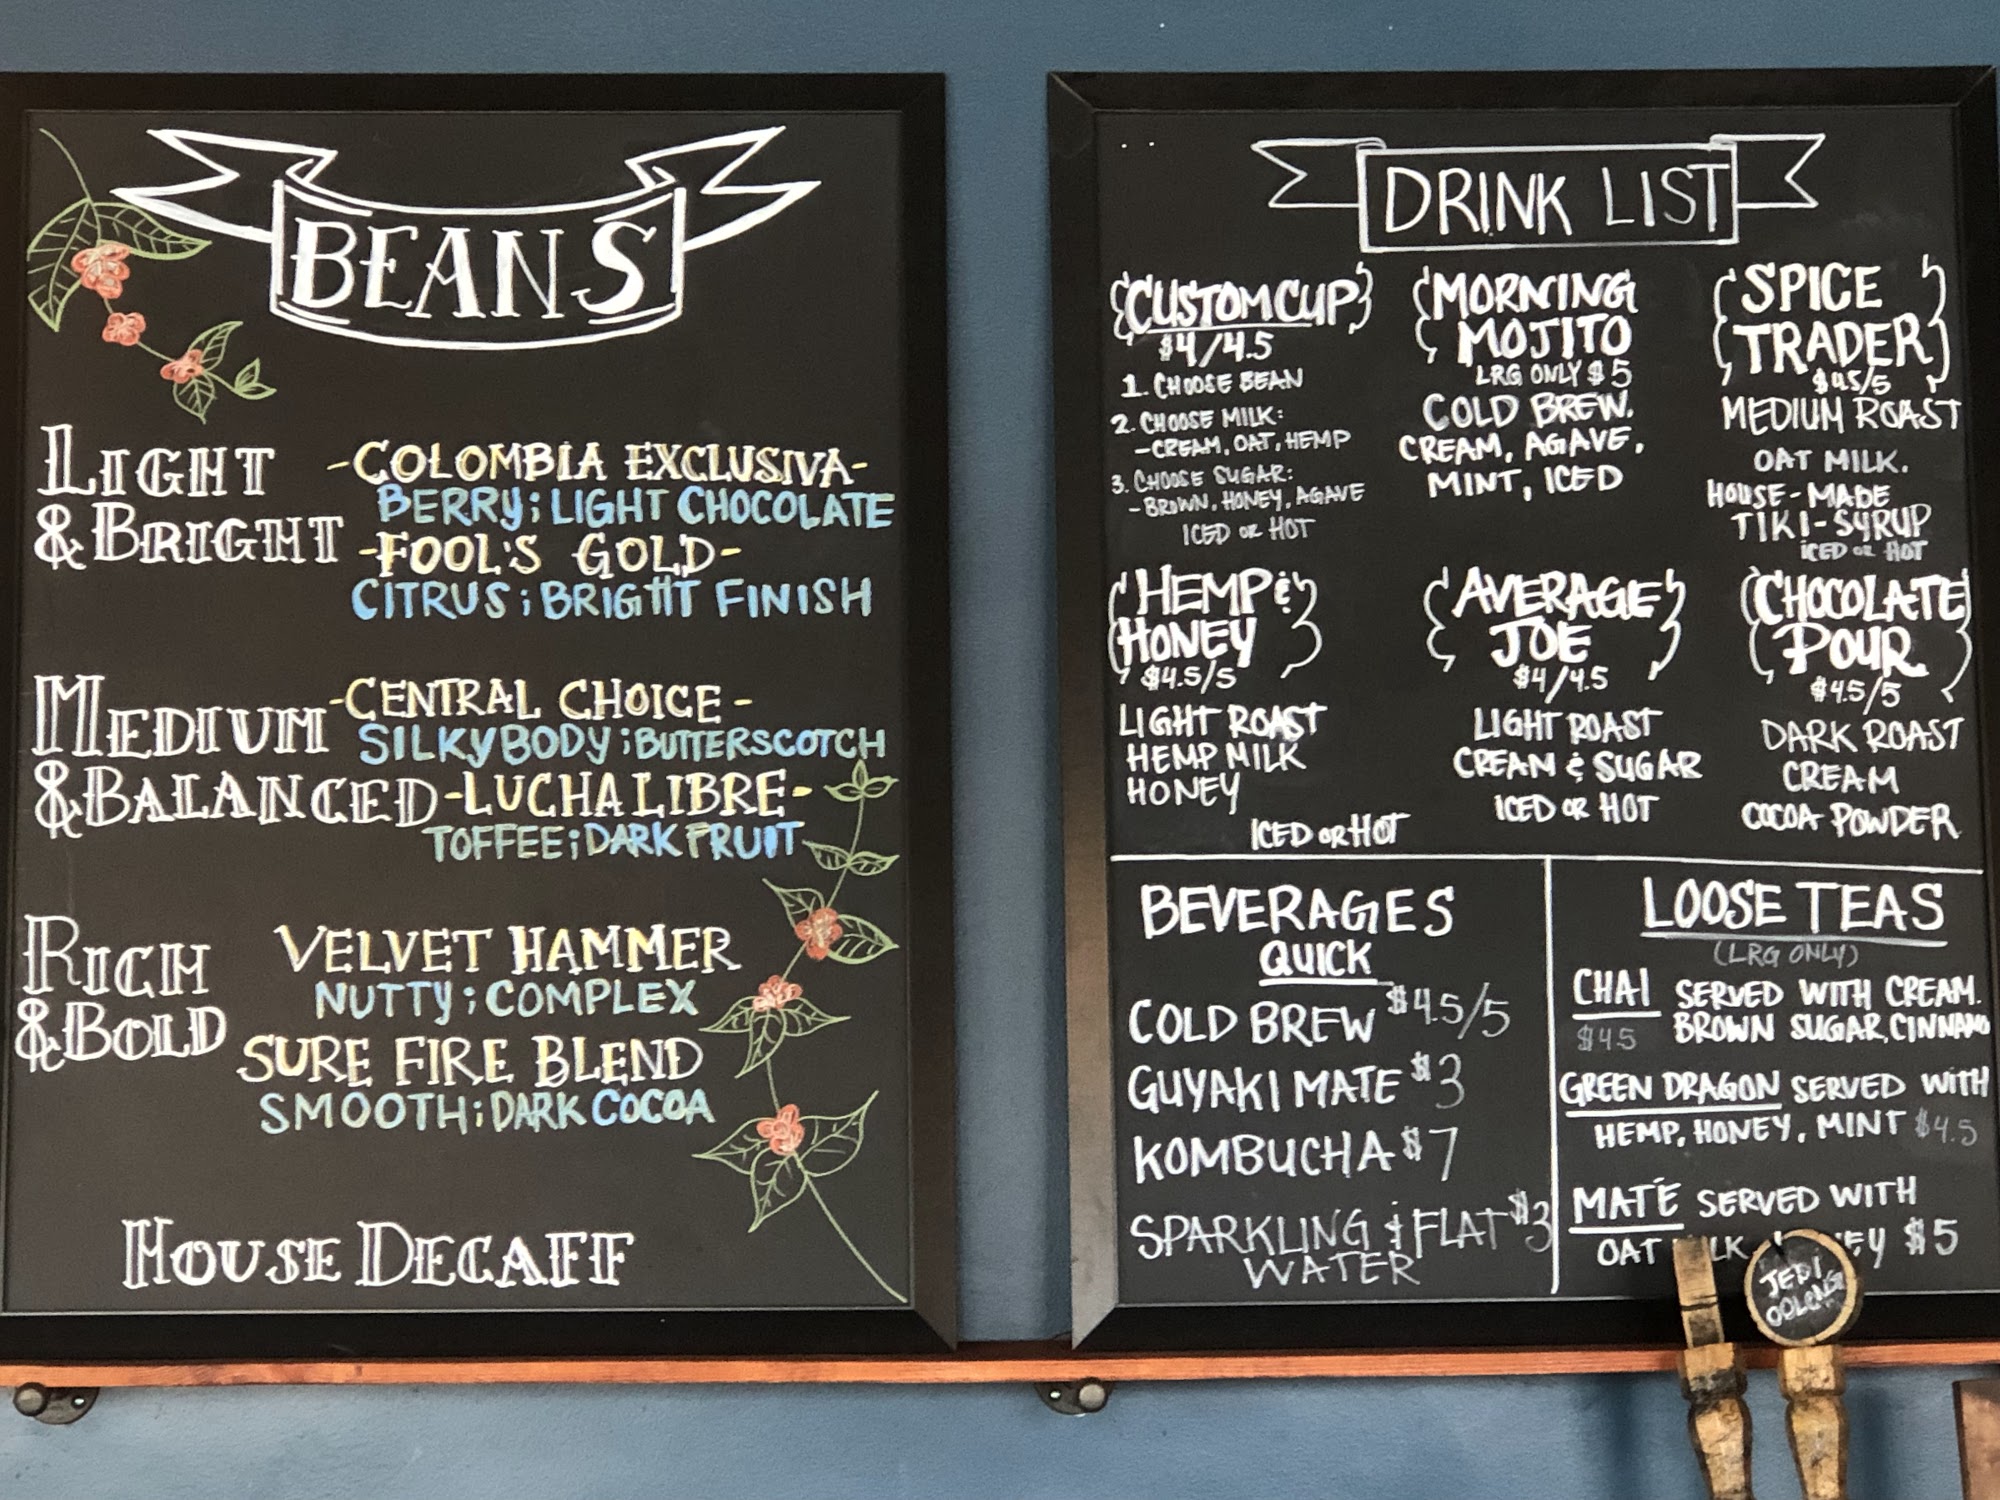 BEANS
LIGHT
& BRIGHT
-COLOMBIA EXCLUSIVA-
BERRY; LIGHT CHOCOLATE
-FOOL'S GOLD-
CITRUS; BRIGHT FINISH
MEDIUM
& BALANCED
-CENTRAL CHOICE-
SILKY BODY; BUTTERSCOTCH
-LUCHA LIBRE-
TOFFEE; DARK FRUIT
RICH
& BOLD
VELVET HAMMER
NUTTY; COMPLEX
SURE FIRE BLEND
SMOOTH; DARK COCOA
HOUSE DECAFF
DRINK LIST
CUSTOM CUP
$4/4.5
1. CHOOSE BEAN
2. CHOOSE MILK:
-CREAM, OAT, HEMP
3. CHOOSE SUGAR:
-BROWN, HONEY, AGAVE
ICED OR HOT
MORNING
MOJITO
LRG ONLY $5
COLD BREW.
CREAM, AGAVE,
MINT, ICED
SPICE
TRADER
$4.5/5
MEDIUM ROAST
OAT MILK.
HOUSE-MADE
TIKI-SYRUP
ICED OR HOT
HEMP &
HONEY
$4.5/5
LIGHT ROAST
HEMP MILK
HONEY
ICED OR HOT
AVERAGE
JOE
$4/4.5
LIGHT ROAST
CREAM & SUGAR
ICED OR HOT
CHOCOLATE
POUR
$4.5/5
DARK ROAST
CREAM
COCOA POWDER
BEVERAGES
QUICK
COLD BREW $4.5/5
GUYAKI MATE $3
KOMBUCHA $7
SPARKLING & FLAT $3
WATER
LOOSE TEAS
(LRG ONLY)
CHAI SERVED WITH CREAM.
$4.5 BROWN SUGAR, CINNAMO
GREEN DRAGON SERVED WITH
HEMP, HONEY, MINT $4.5
MATÉ SERVED WITH
OAT $5
JEDI
OOLONG